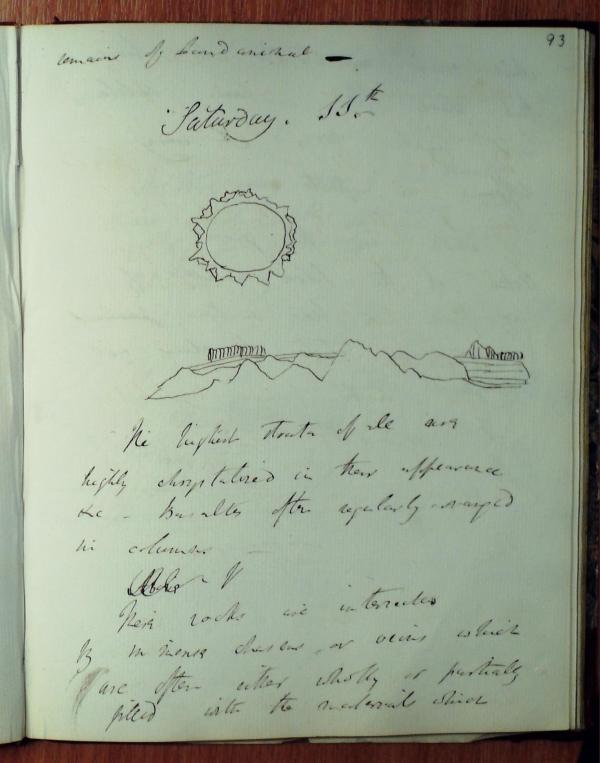 93
remains of land animal —
Saturday. 11th
The highest strata of all are
highly chrystalized in their appearance
&c - Basaltes often regularly arranged
in columns —
These rocks are intersected
by immense chasms, or veins which
are often either wholly or partially
filled with the materials which